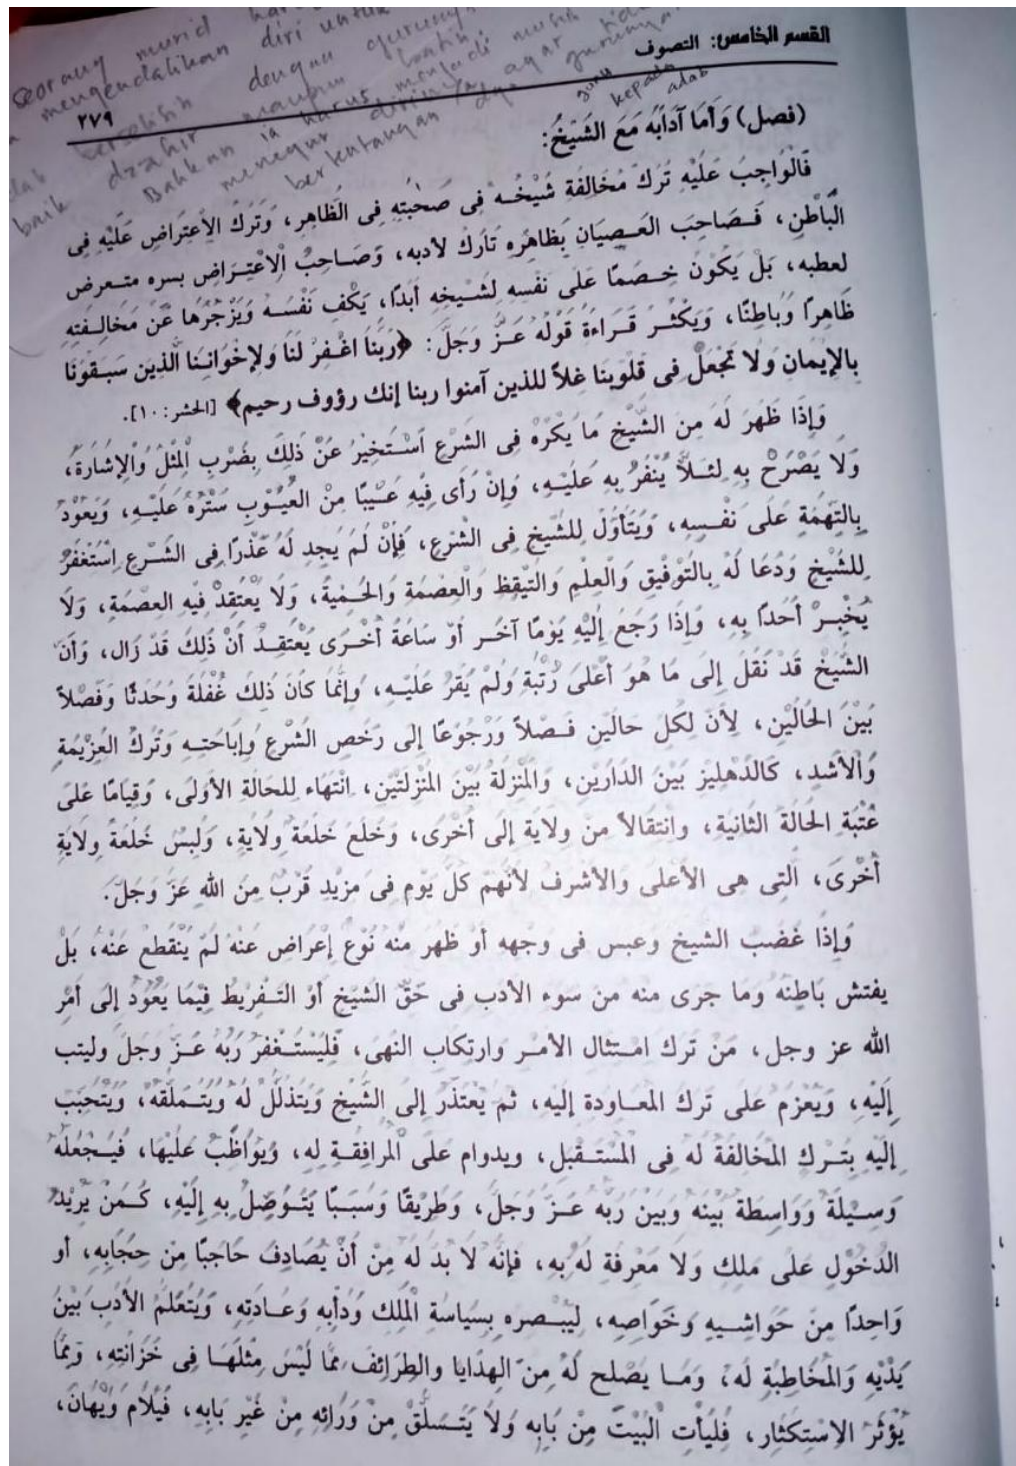 القسم الخامس: التصوف
٢٧٩
seorang murid
mengendalikan diri untuk
berselisih dengan gurunya
baik dzahir maupun batin.
Bahkan ia harus menjadi musuh
menegur dirinya agar tidak
bertentangan dgn gurunya.
guru
kepada
adab
(فصل) وَأما آدَابُه مَعَ الشَيْخُ:
فَالْوَاجِبُ عَلَيْهِ تَرْكَ مُخَالِفَة شَيْخُـه فِى صَحْبَتِهِ فِى الظَاهِرِ، وَتَرْكُ الاِعْتِرَاضِ عَلَيْهِ فِى
الْبَاطِنِ، فَـصَاحِبَ الْعَـصِيَانَ بِظَاهِرِهِ تَارَكَ لأدبه، وَصَـاحِبُ الْاعْتِـرَاض بسره متـعرض
لعطبه، بَلْ يَكُوْنُ خِـصَمًا عَلَى نَفْسه لشَـيْخِهِ أَبَدًا، يَكُف نَفْسَـهُ وَيَزْجُرُهَا عَنْ مَخَالِـفَتِهِ
ظَاهِرًا وَبَاطِنًا، وَيَكْثُـر قِـرَاءَةُ قَوْلُهُ عَـزَّ وَجَلَّ: ﴿رَبُنَا اغْفِرْ لَنَا وَلإخْوَانِـنَا الَّذينَ سَبَـقَوْنَا
بالإيْمَان وَلَا تَجْعَلْ فِى قُلُوبِنَا غلاً للذين آمنوا ربنا إنك رؤوف رحيم﴾ [الحشر: ١٠].
وَإِذَا ظَهَرَ لَهُ مِنَ الشَّيْخِ مَا يَكْرَهُ فِى الشَرْعِ اسْـتَخْيَرُ عَنْ ذَلِكَ بِضَرْبِ الْمِثْلُ وَالْإِشَارَةُ،
وَلَا يَصْرَحْ بِهِ لئـلاَّ يُنْفَرُ بِهِ عَلَيْـهِ، وَإِنْ رَأَى فِيهِ عَـيْبًا مِنَ الْعُيُـوْبِ سَتْرُهُ عَلَيْـهِ، وَيَعُوْدُ
بِالتَهَمَةِ عَلَى نَفْـسِهِ، وَيَتَأَوَلُ للشَيْخِ فِى الشَرْعِ، فَإِنْ لَمْ يَجِد لَهُ عُذْرًا فِى الشَـرْعِ اسْتَغْفَرُ
لِلشَيْخِ وَدُعَا لَهُ بِالتَوْفِيقِ وَالْعِلْمِ وَالتَيْقِظ وَالْعِصْمَةِ وَالْحُمْيَةُ، وَلَا يَعْتَقِدْ فِيهِ العِصْمَةِ، وَلَا
يُخْبِـرْ أَحَدًا بِهِ، وَإِذَا رَجَعَ إِلَيْهِ يَوْمًا آخَـر أَوْ سَاعَةً أُخْـرَى يَعْتَقِـدُ أَنْ ذَلِكَ قَدْ زَال، وَأَنَّ
الشَّيْخَ قَدْ نُقْلَ إِلَى مَا هُوَ أَعْلَى رُتْبَةٍ وَلَمْ يَقْرُ عَلَيْـهِ، وَإِنَّمَا كَانَ ذَلِكَ غُفْلَةً وَحَدَثًا وَفَصْلاً
بَيْنَ الْحَالَيْنِ، لِأَنَ لِكُلِ حَالَيْنِ فَـصْلاً وَرَجُوْعًا إِلَى رَخَصِ الشَرْعِ وَإِبَاحَتِـهِ وَتَرَكُ الْعَزِيْمَةِ
وَالْأَشَدِ، كَالدَهْلِيْز بَيْنَ الدَارَيْنِ، وَالْمَنْزِلَةُ بَيْنَ الْمَنْزِلَتَيْنِ، انتهَاء للحالة الأُوْلَى، وَقِيَامًا عَلَى
عُتْبَةِ الْحَالَة الثَانِيَة، وَانْتِقَالاً مِنْ وِلَايَة إِلَى أُخْرَى، وَخَلَعَ خَلَعَةْ وِلَايَةٍ، وَلَبِسَ خَلَعَةُ وِلَايَةٍ
أُخْرَى، الَتِى هِىَ الأَعْلَى وَالأَشْرَف لأَنَهُمْ كَلَ يَوْمٍ فِى مَزِيْدِ قَرُبَ مِنَ الله عَزَ وَجَلَ.
وَإِذَا غَضَبَ الشَيخ وعبس فى وَجْهه أَوْ ظَهَرَ مِنْهُ نَوْعُ إِعْرَاض عَنْهُ لَمْ يَنْقَطعْ عَنْهُ، بَلْ
يفتش بَاطِنَهُ وما جرى منه من سوء الأدب فى حَقّ الشَيْخِ أَوْ التَـفْرِيْطُ فِيْمَا يَعُوْدُ إِلَى أَمْرِ
الله عز وجل، مَنْ تَرَكَ امـتثال الأمـر وارتكاب النهى، فَلْيَسْتَـغْفِرُ رَبَّهُ عَـزَ وَجلَ وليتب
إِلَيْهِ، وَيَعْزِمُ عَلَى تَرْك المعَـاودة إِلَيْهِ، ثُمَ يَعْتَذَرُ إِلَى الشَّيْخِ وَيَتَذَلَّلُ لَهُ وَيَتَـمَلَّقَهُ، وَيَتَحَبَب
إِلَيْهِ بِتَـرْكِ الْمُخَالَفَةُ لَهُ فِى الْمُسْتَـقْبَلِ، ويدوام عَلَى الْمُرَافَقِـةِ لَهِ، وَيُوَاظَبُ عَلَيْهَا، فَيَـجْعَلُهُ
وَسِـيْلَةً وَوَاسِطَة بَيْنَه وَبَيْنَ رَبَه عَـزَ وَجَلَ، وَطَرِيْقًا وَسَبَـبًا يَتَـوَصَّلُ بِه إِلَيْهِ، كَـمَنْ يُرِيْدُ
الدُخُوْلِ عَلَى مَلِكِ وَلَا مَعْرِفَة لَهُ بِهِ، فَإِنَّهُ لَا بَدَ لَهُ مِنْ أَنْ يُصَادِفَ حَاجِبًا مِنْ حِجَابِهِ، أو
وَاحِدًا مِنْ حَوَاشِـيهِ وَخَوَاصِهِ، لِيَبْـصِرَه بِسِيَاسَةِ الْمَلِكِ وَدَأَبِه وَعَـادَتِهِ، وَيَتَعَلَمُ الأدب بَيْنَ
يَدَيْهِ وَالْمُخَاطَبَةِ لَهُ، وَمَـا يَصْلَح لَهُ مِنَ الهِدَايَا والطَرَائِف مِمَّا لَيْسَ مِثْلَهَا فِى خَزَانَتِهِ، وَمِمَّا
يُؤْثَرُ الاِسْتِكْثَار، فَلْيَأْتِ الْبَيْتَ مِنْ بَابِه وَلَا يَتَـسَلَقْ مِنْ وَرَائِهِ مِنْ غَيْرِ بَابِهِ، فَيُلَام وَيُهَانَ،